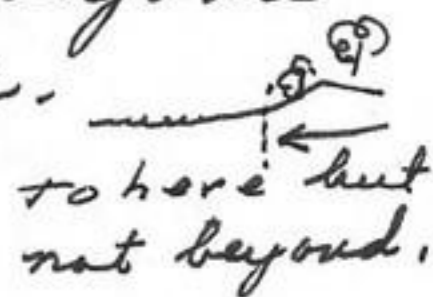 to here but
not beyond.